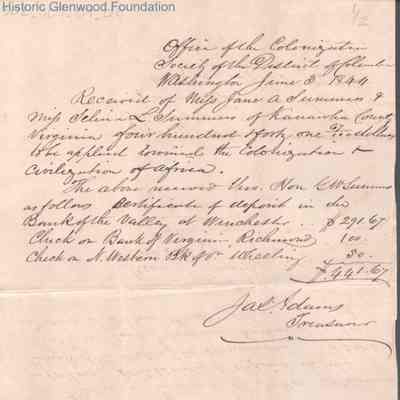 Historic Glenwood.Foundation
1/2
Office of the Colonization
Society of the District of Columbia
Washington June 3 1844
Received of Miss Jane A Summers &
Miss Selina L Summers of Kanawha County
Virginia four hundred & forty one 67/100 dollars
to be applied towards the Colonization &
civilization of Africa.
The above received thro. Hon G W Summers
as follows Certificate of deposit in the
Bank of the Valley at Winchester .. $291.67
Check on Bank of Virginia Richmond 100.
Check on N. Western Bk of Va Wheeling 50.
$441.67
Jas. Adams
Treasurer